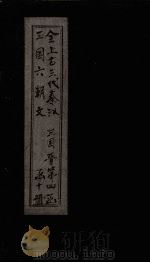 全上古三代秦汉
三国六朝文
三国晋第四函
十册